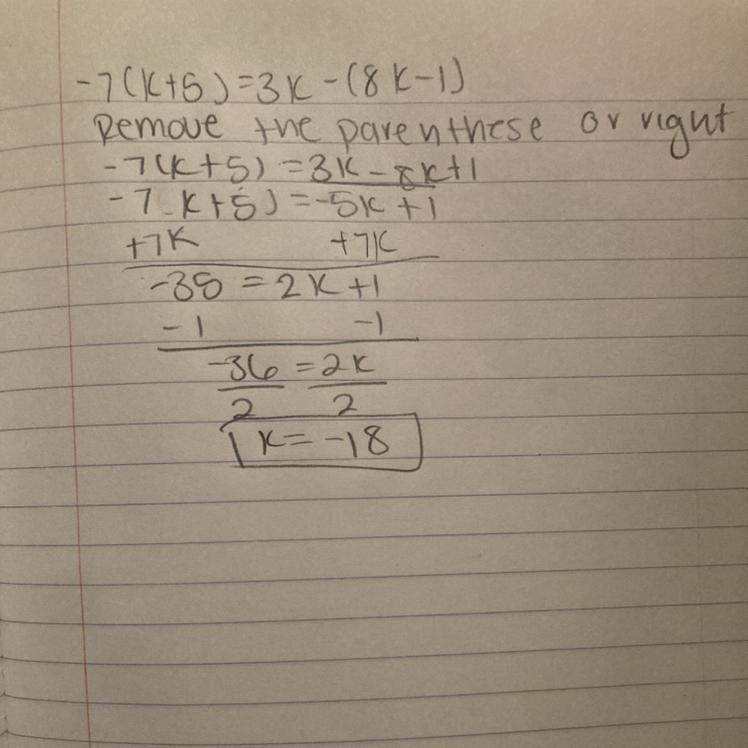 -7(k+5)=3k-(8k-1)
Remove the parenthese or right
-7(k+5)=3k-8k+1
-7 k+5)=-5k+1
+7k +7k
-35=2k+1
-1 -1
-36=2k
2 2
k=-18